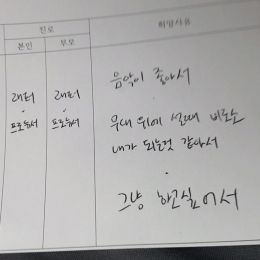 진로 희망사유
본인 부모
음악이 좋아서
래퍼 래퍼
프로듀서 프로듀서 무대 위에 설때 비로소
내가 되는것 같아서
그냥 하고싶어서